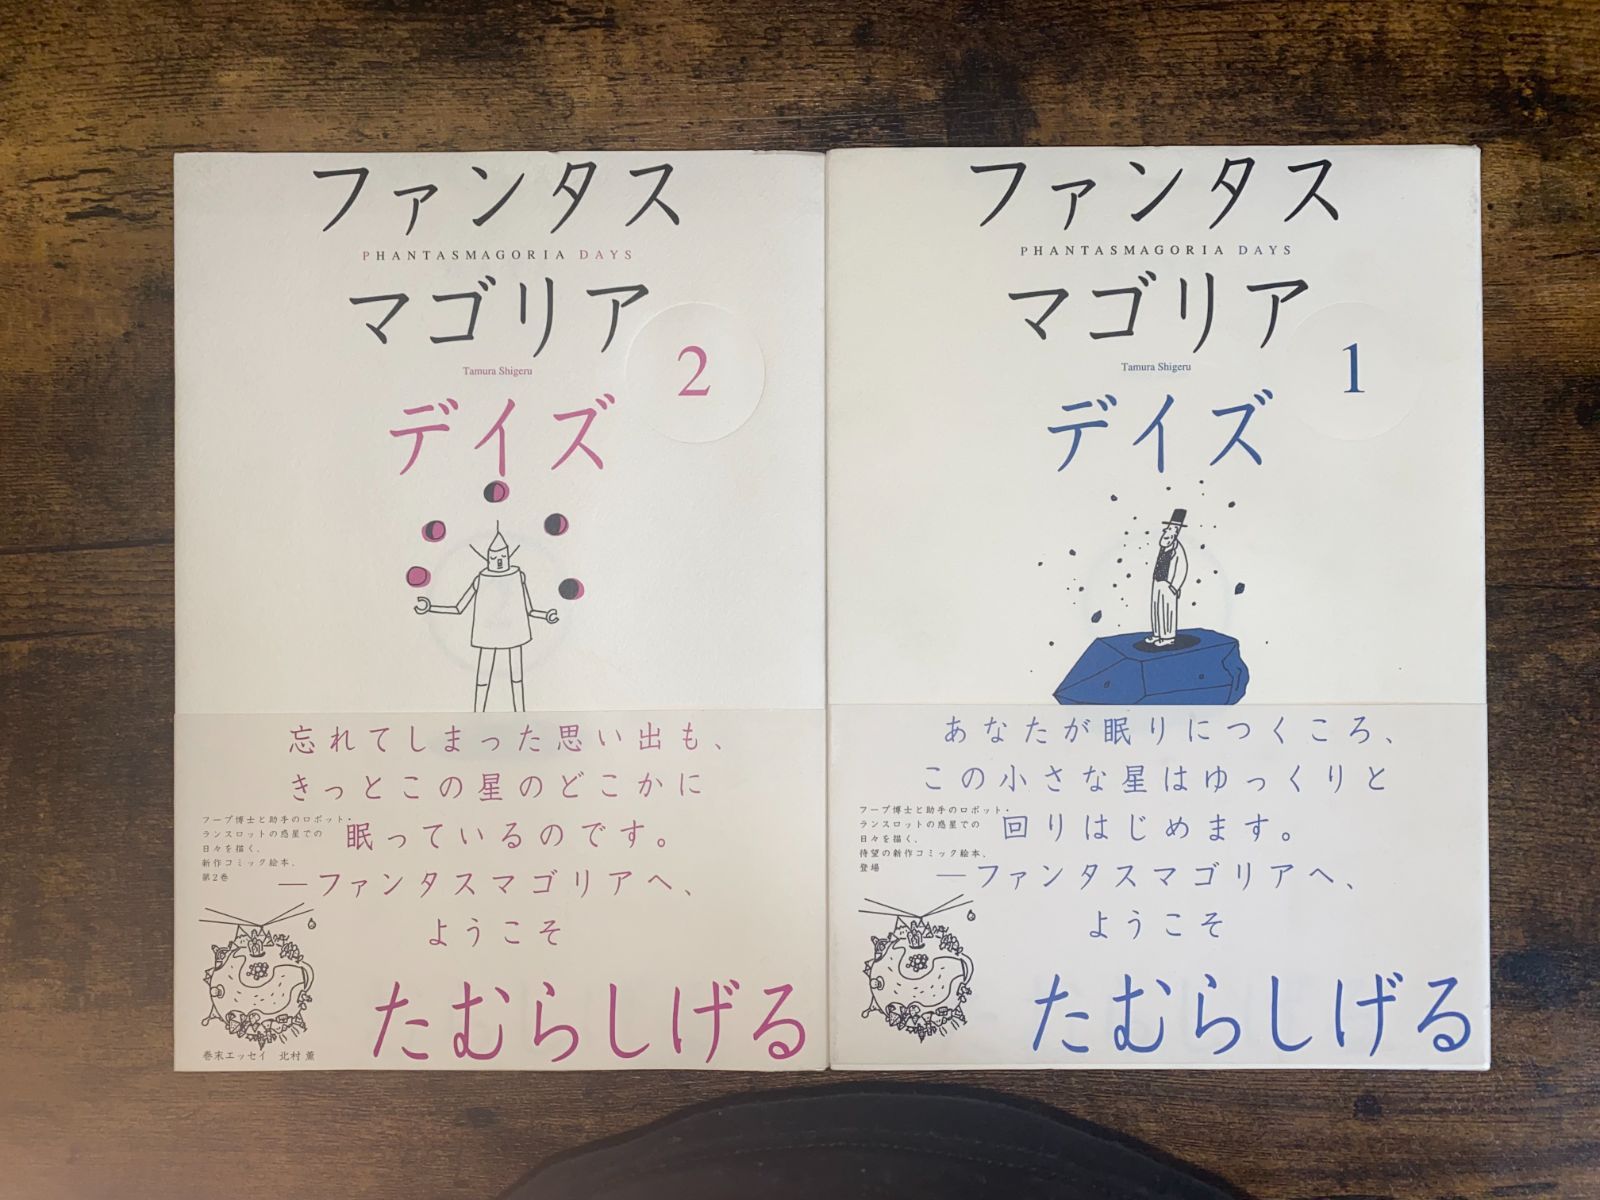 ファンタス
PHANTASMAGORIA DAYS
マゴリア
2
Tamura Shigeru
デイズ
忘れてしまった思い出も、
きっとこの星のどこかに
眠っているのです。
―ファンタスマゴリアへ、
ようこそ
フープ博士と助手のロボット・
ランスロットの惑星での
日々を描く、
新作コミック絵本、
第2巻
たむらしげる
巻末エッセイ 北村 薫
ファンタス
PHANTASMAGORIA DAYS
マゴリア
1
Tamura Shigeru
デイズ
あなたが眠りにつくころ、
この小さな星はゆっくりと
回りはじめます。
―ファンタスマゴリアへ、
ようこそ
フープ博士と助手のロボット・
ランスロットの惑星での
日々を描く、
待望の新作コミック絵本、
登場
たむらしげる